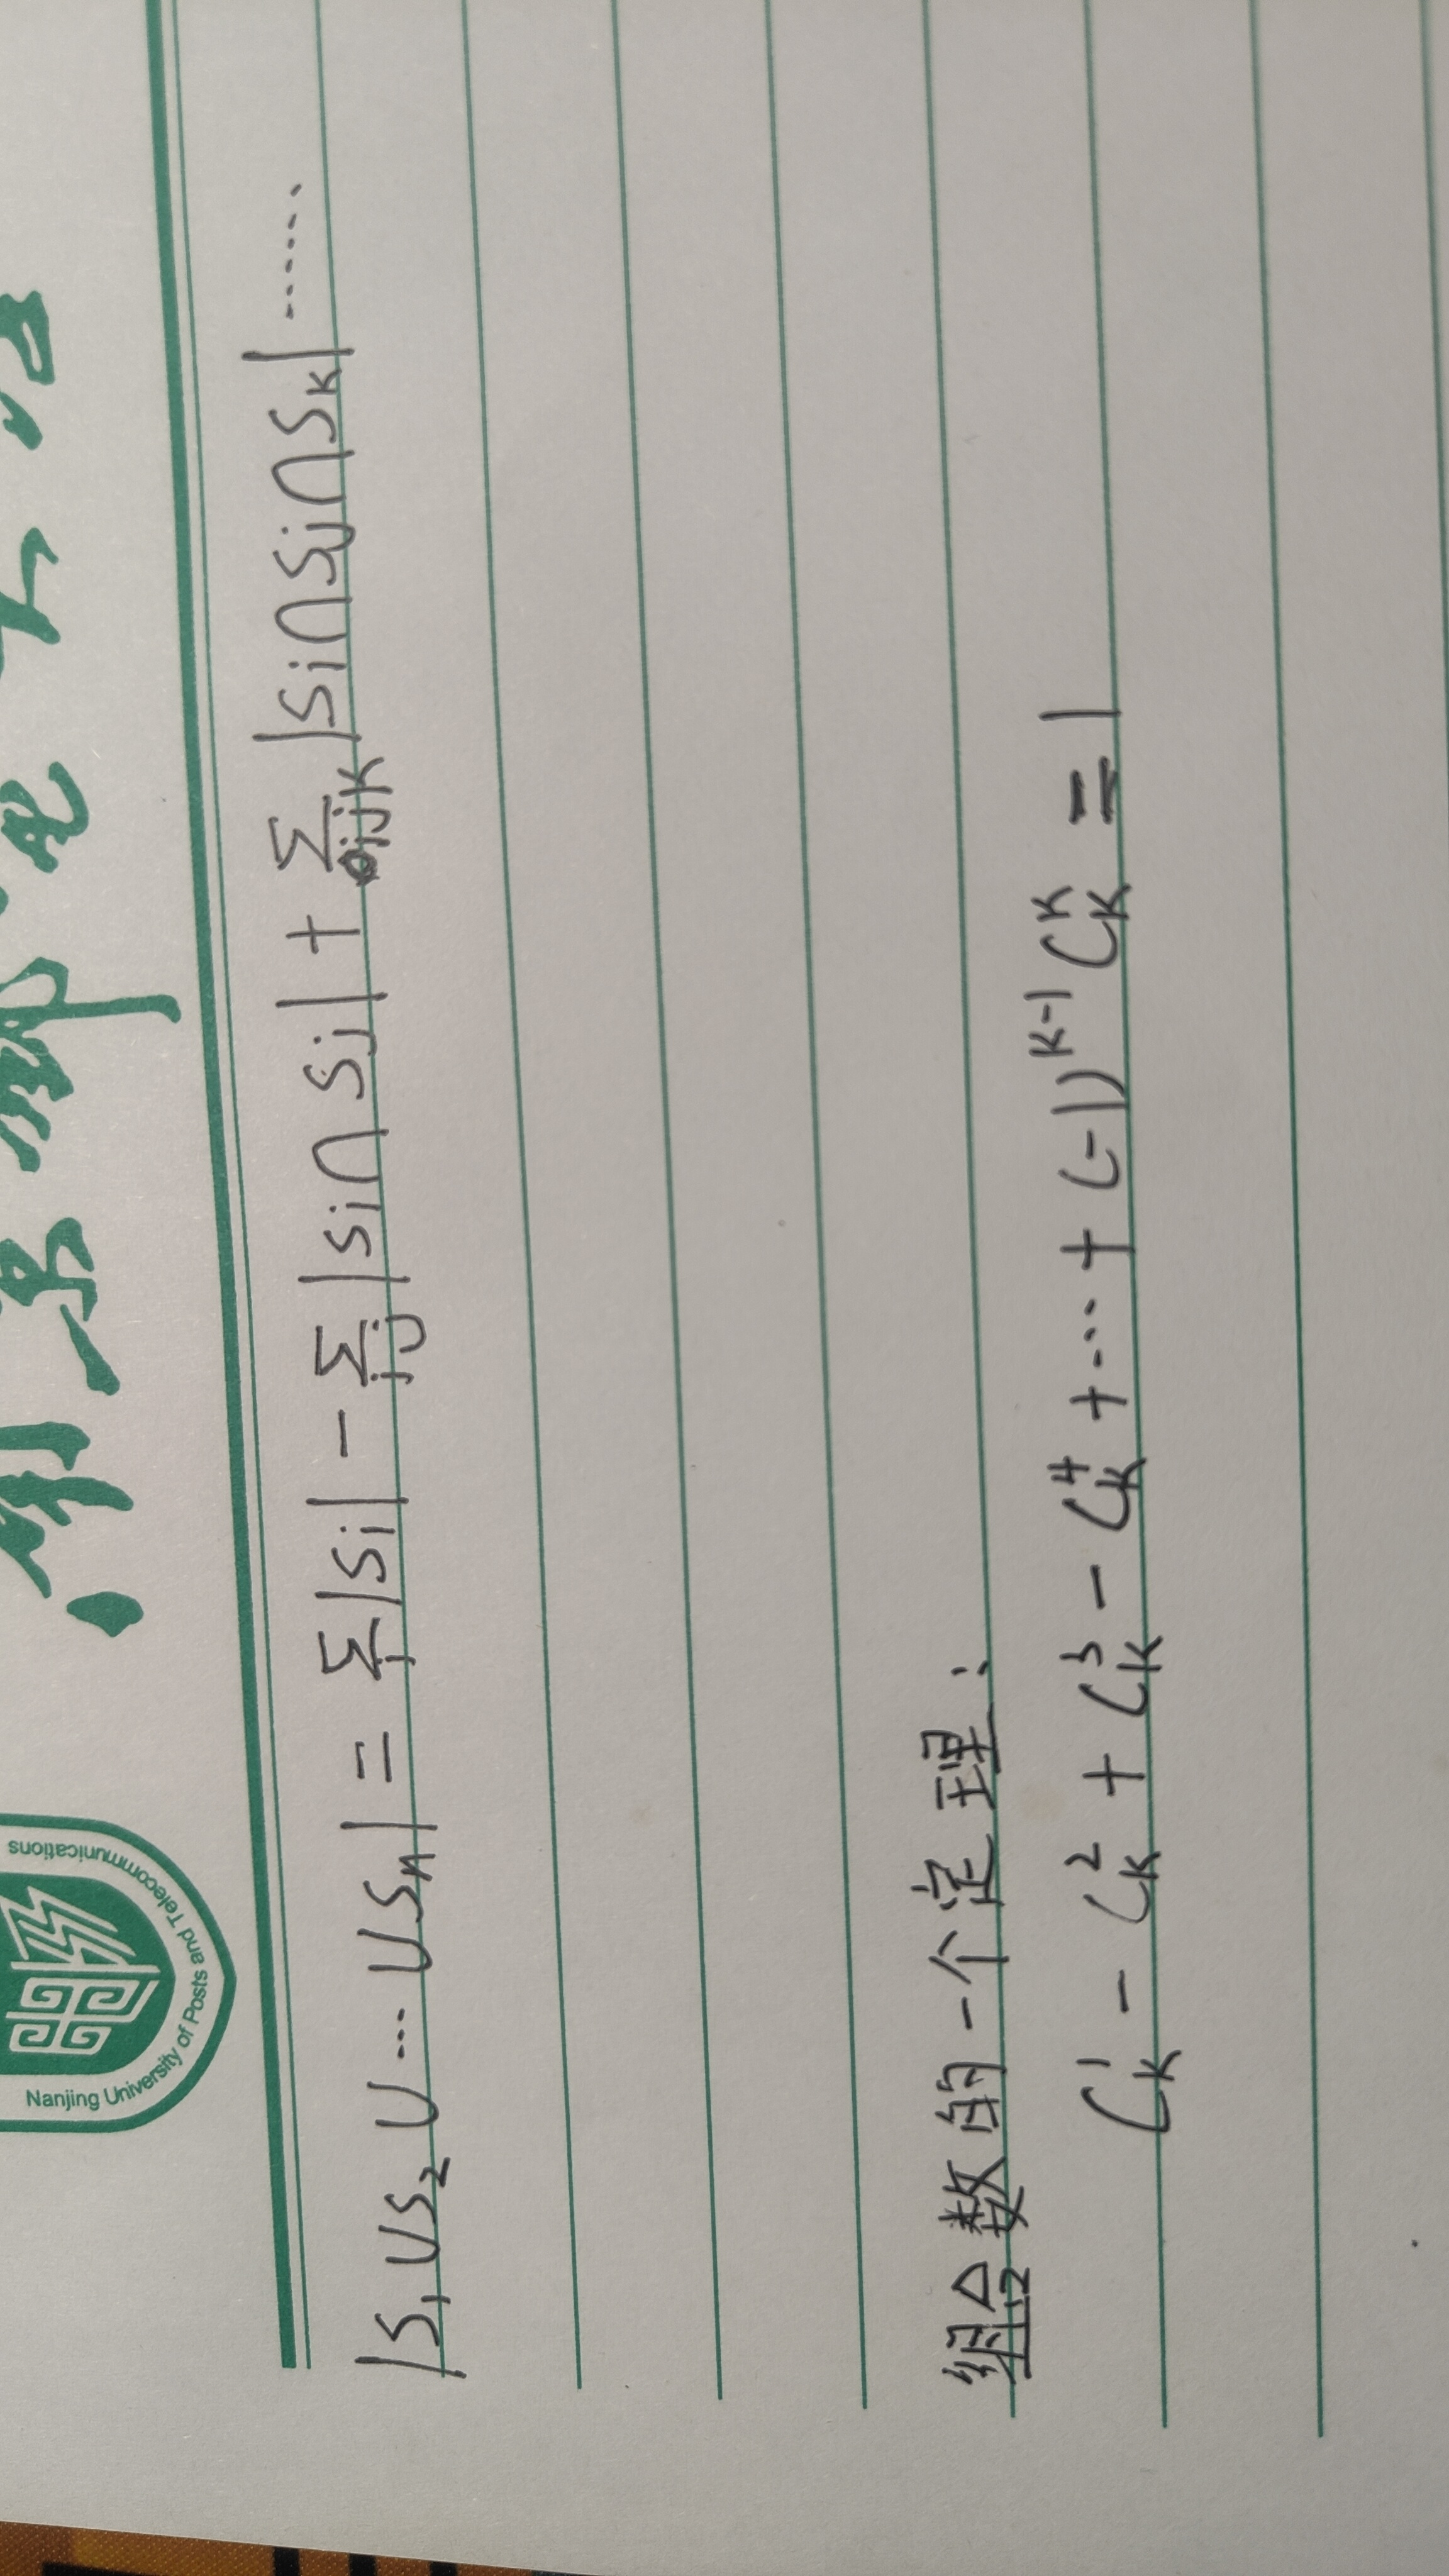 Nanjing University of Posts and Telecommunications
|S₁∪S₂∪…∪Sₙ| = Σᵢ|Sᵢ| − Σᵢⱼ|Sᵢ∩Sⱼ| + Σᵢⱼₖ|Sᵢ∩Sⱼ∩Sₖ| ……
组合数的一个定理:
C_K^1 − C_K^2 + C_K^3 − C_K^4 + … + (−1)^{K−1} C_K^K = 1